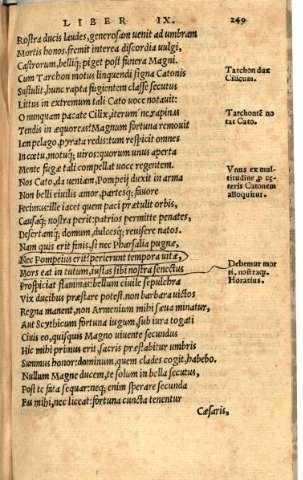 LIBER IX. 249
Rostra ducis laudes, generosam uenit ad umbram
Mortis honos. fremit interea discordia uulgi,
Castrorum, belliq; piget post funera Magni.
Cum Tarchon motus linquendi signa Catonis
Tarchon dux
Cilicum.
Sustulit. hunc rapta fugientem classe secutus
Littus in extremum tali Cato uoce notauit:
O nunquam pacate Cilix, iterum' ne rapinas
Tarchontē no
tat Cato.
Tendis in æquoreas? Magnum fortuna remouit
Iam pelago, pyrata redis: tum respicit omnes
In cœtu, motuq; uiros: quorum unus aperta
Mente fugæ tali compellat uoce regentem.
Vnus ex mul-
titudine, p cę-
teris Catonem
alloquitur.
Nos Cato, da ueniam, Pompeij duxit in arma
Non belli ciuilis amor, partesq; fauore
Fecimus: ille iacet quem paci prætulit orbis,
Causaq; nostra perit: patrios permitte penates,
Desertamq; domum, dulcesq; reuisere natos.
Nam quis erit finis, si nec Pharsalia pugnæ,
Nec Pompeius erit? perierunt tempora uitæ,
Mors eat in tutum, iustas sibi nostra senectus
Debemur mor
ti, nostraq;.
Horatius.
Prospiciat flammas: bellum ciuile sepulchra
Vix ducibus præstare potest. non barbara uictos
Regna manent, non Armenium mihi sæua minatur,
Aut Scythicum fortuna iugum, sub iura togati
Ciuis eo, quisquis Magno uiuente secundus
Hic mihi primus erit, sacris præstabitur umbris
Summus honor: dominum, quem clades cogit, habebo.
Nullum Magne ducem, te solum in bella secutus,
Post te fata sequar: neq; enim sperare secunda
Fas mihi, nec liceat: fortuna cuncta tenentur
Cæsaris,